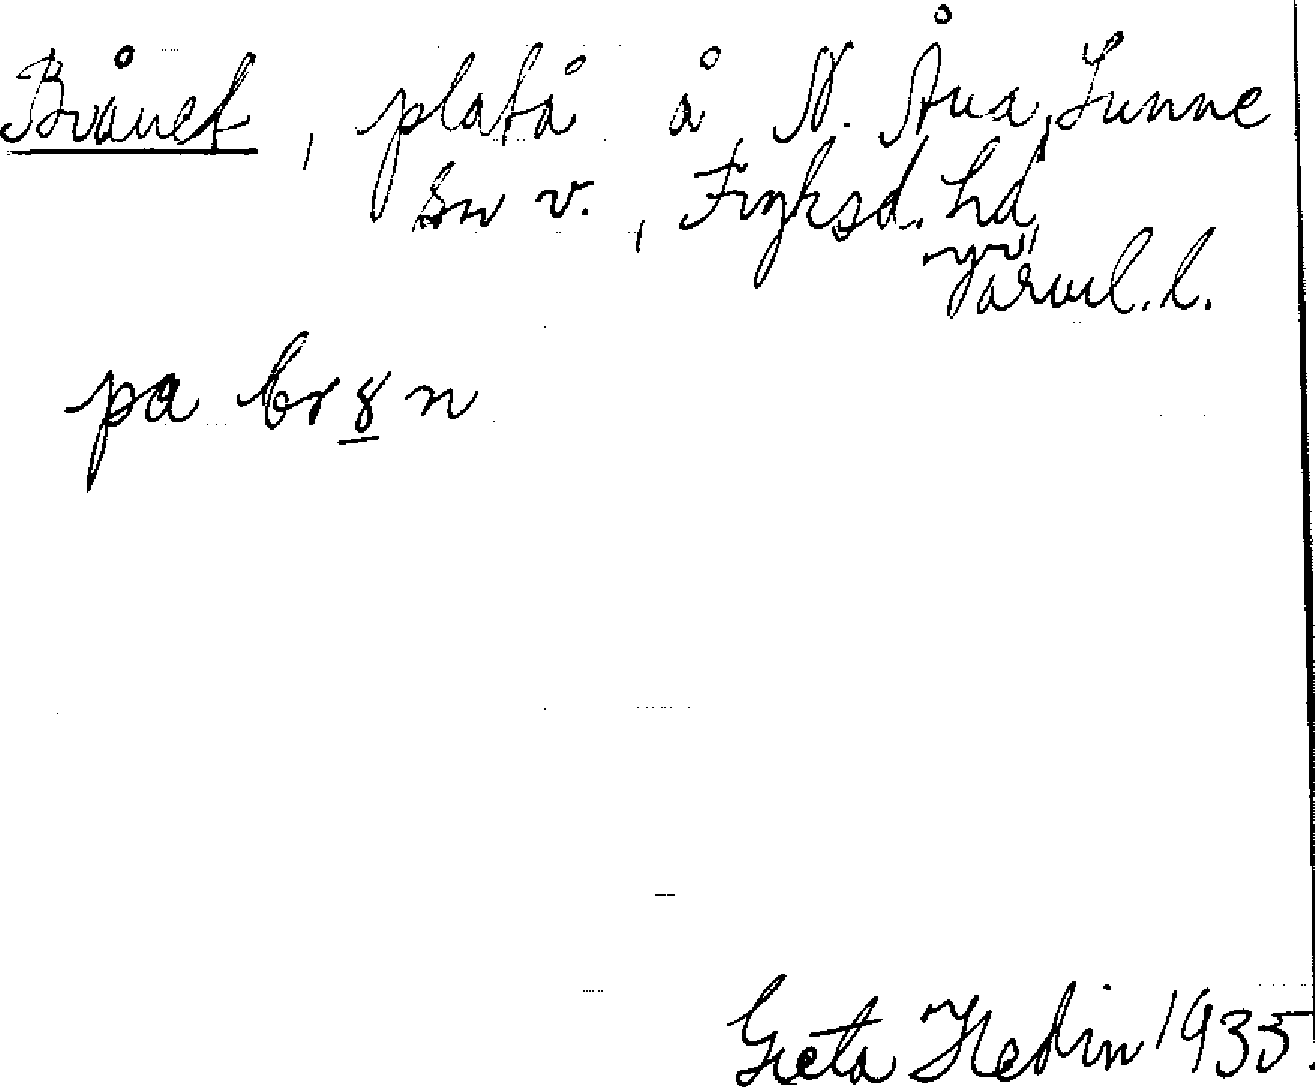 Brånet, platå å N. Åna, Sunne
sn v., Fryksd. hd,
Värml. l.
pa br8n
Greta Hedin 1935.